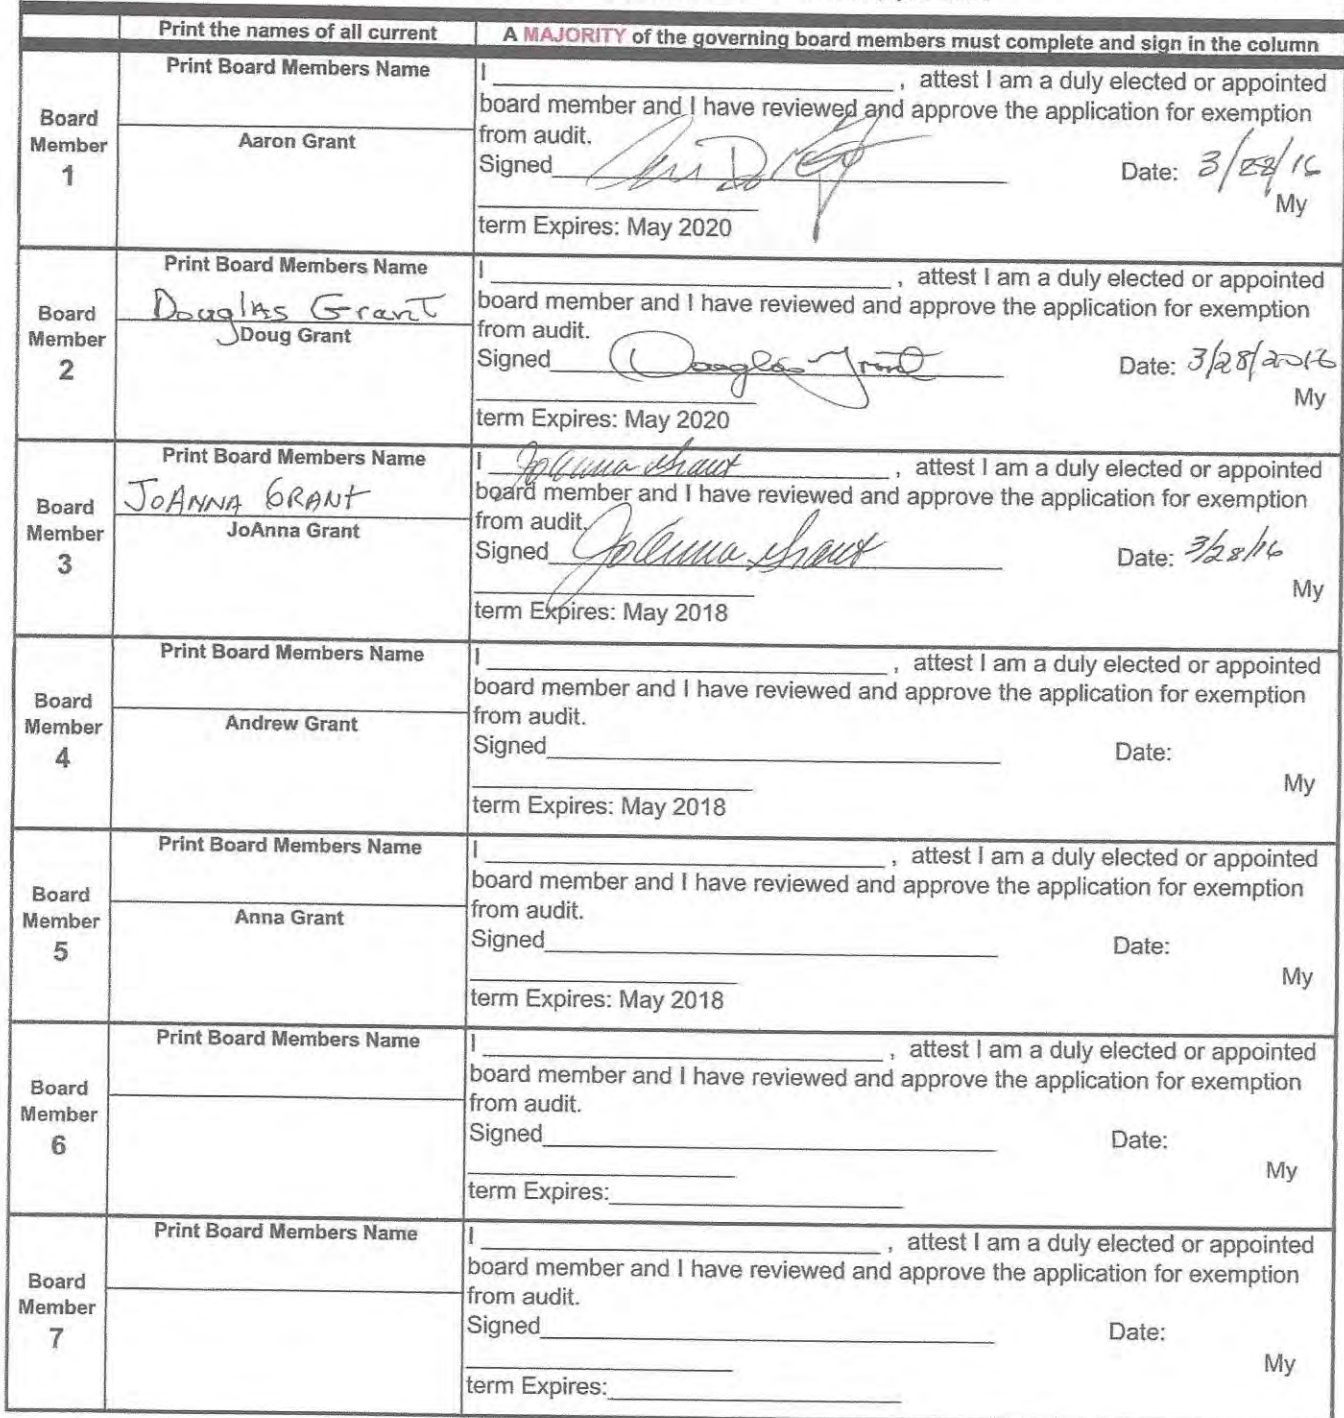 Print the names of all current
A MAJORITY of the governing board members must complete and sign in the column
Board Member 1
Print Board Members Name
Aaron Grant
I , attest I am a duly elected or appointed
board member and I have reviewed and approve the application for exemption
from audit.
Signed Date: 3/28/16
My
term Expires: May 2020
Board Member 2
Print Board Members Name
Douglas Grant
Doug Grant
I , attest I am a duly elected or appointed
board member and I have reviewed and approve the application for exemption
from audit.
Signed Douglas Grant Date: 3/28/2016
My
term Expires: May 2020
Board Member 3
Print Board Members Name
JoANNA GRANT
JoAnna Grant
I JoAnna Grant , attest I am a duly elected or appointed
board member and I have reviewed and approve the application for exemption
from audit.
Signed JoAnna Grant Date: 3/28/16
My
term Expires: May 2018
Board Member 4
Print Board Members Name
Andrew Grant
I , attest I am a duly elected or appointed
board member and I have reviewed and approve the application for exemption
from audit.
Signed Date:
My
term Expires: May 2018
Board Member 5
Print Board Members Name
Anna Grant
I , attest I am a duly elected or appointed
board member and I have reviewed and approve the application for exemption
from audit.
Signed Date:
My
term Expires: May 2018
Board Member 6
Print Board Members Name
I , attest I am a duly elected or appointed
board member and I have reviewed and approve the application for exemption
from audit.
Signed Date:
My
term Expires:
Board Member 7
Print Board Members Name
I , attest I am a duly elected or appointed
board member and I have reviewed and approve the application for exemption
from audit.
Signed Date:
My
term Expires: